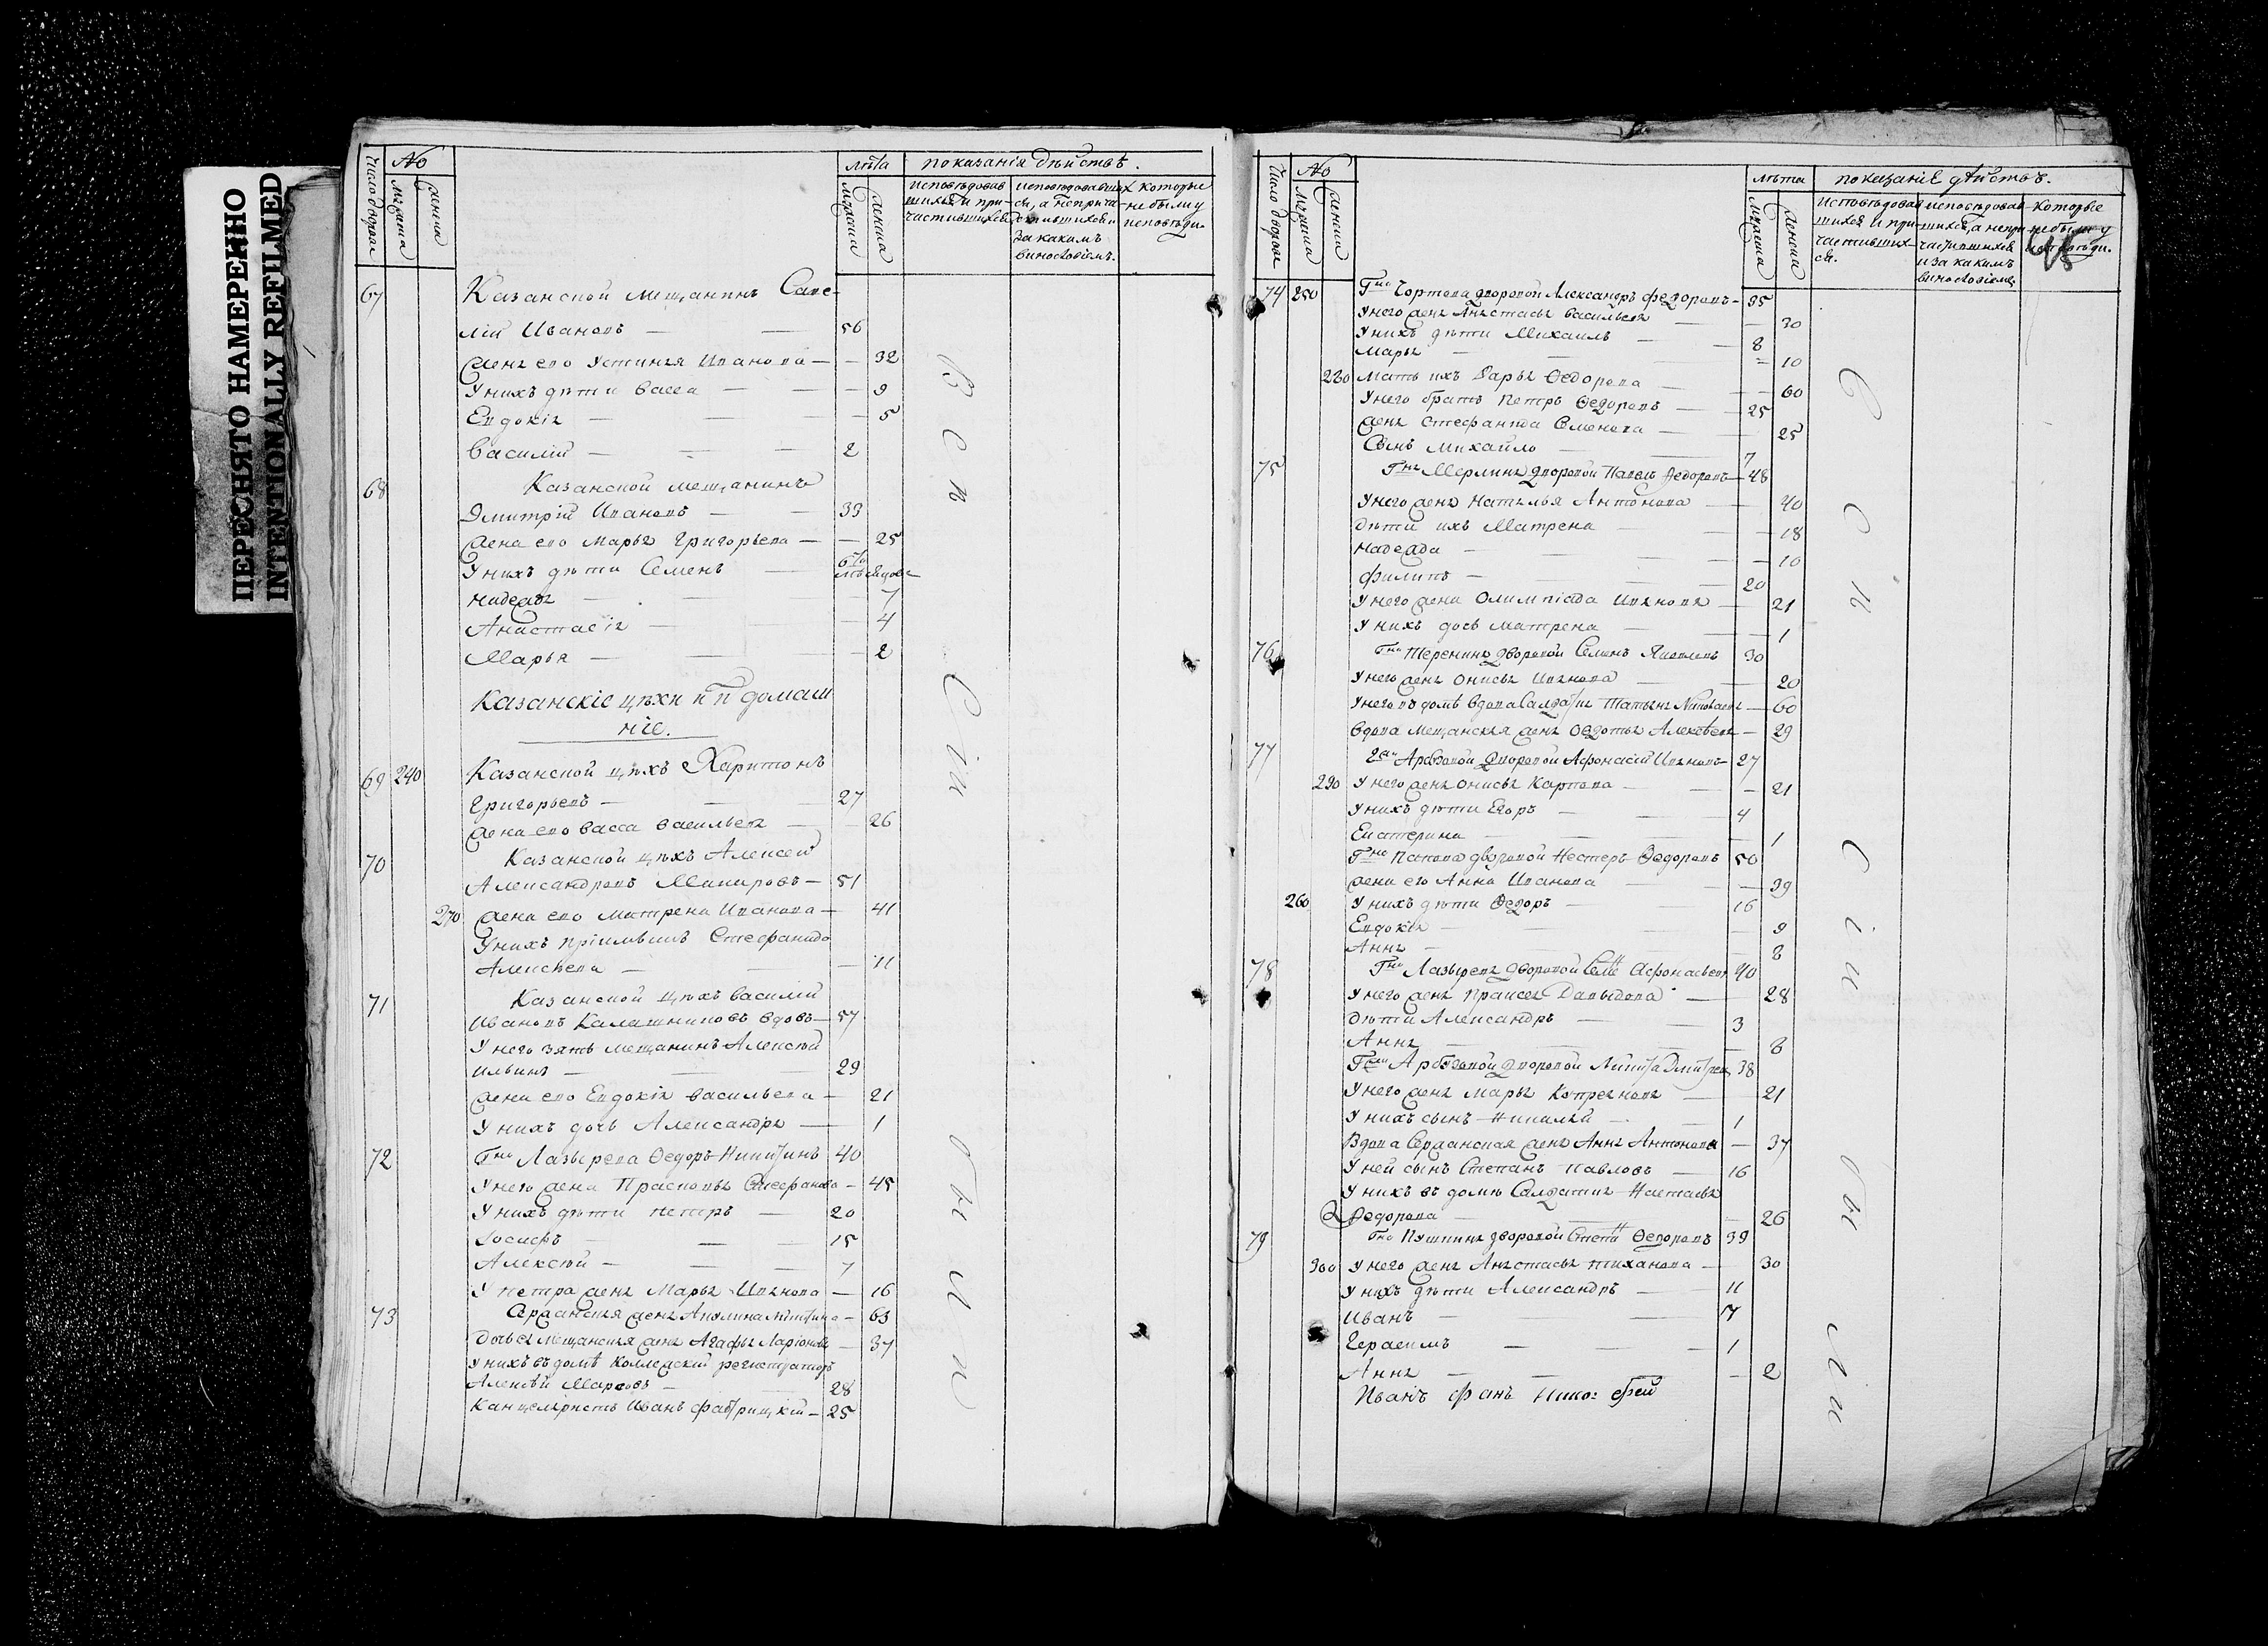 ПЕРЕСНЯТО НАМЕРЕННО
INTENTIONALLY REFILMED
Число дворовъ
№
Мужеска
Женска
лѣта
Мужеска
Женска
показанія дѣйствъ.
исповѣдовав
шихся и при-
частившихся
исповѣдовавших
ся, а неприча-
стившихся и
за какимъ
винословіемъ.
которые
не были у
исповѣди.
67 Казанской мещанинъ Саве-
лій Ивановъ — 56
жена его Устинья Иванова — 32
У нихъ дѣти Васса — 9
Евдокія — 5
Василій — 2
68 Казанской мещанинъ
Дмитрій Ивановъ — 33
жена его Марья Григорьева — 25
У нихъ дѣти Семенъ — 6ти мѣсяцовъ
Надежда — 7
Анастасія — 4
Марья — 2
Казанскіе цѣхи и домаш
ніе.
69 240 Казанской цѣхъ Харитонъ
Григорьевъ — 27
жена его Васса Васильева — 26
70 Казанской цѣхъ Алексей
Александровъ Макировъ — 51
270 жена его Матрена Иванова — 41
У нихъ пріимышъ Стефанида
Алексѣева — 11
71 Казанской цѣхъ Василій
Ивановъ Калашниковъ вдовъ — 57
У него зять мещанинъ Алексѣй
Ильинъ — 29
жена его Евдокія Васильева — 21
У нихъ дочь Александра — 1
72 Гна Лазырева Ѳедоръ Никитинъ 40
У него жена Прасковья Стефанова — 45
У нихъ дѣти Петръ — 20
Іосифъ — 15
Алексѣй — 7
У Петра жена Марья Иванова — 16
73 Сержанская жена Акулина Никитина — 63
Дочь ея мещанская жена Агафья Ларіонова — 37
У нихъ въ домѣ коллежскій регистраторъ
Алексѣй Марковъ — 28
Канцеляристъ Иванъ — 25
Всп
сіи
были
Число дворовъ
№
Мужеска
Женска
лѣта
Мужеска
Женска
показаніе дѣйствъ.
Исповѣдовав
шихся и при-
частивших-
ся.
исповѣдовав-
шихся, а непри
частившихся
и за какимъ
винословіемъ
которые
не были у
исповѣди.
74 250 Гна Чортова дворовой Александръ Федоровъ — 35
У него жена Анастасья Васильева — 30
У нихъ дѣти Михаилъ — 8
Марья — 10
280 Мать ихъ Дарья Ѳедорова — 60
У него братъ Петръ Ѳедоровъ — 25
жена Стефанида Семенова — 25
Сынъ Михайло — 7
75 Гна Мерлина дворовой Павелъ Ѳедоровъ — 48
У него жена Наталья Антонова — 40
Дѣти ихъ Матрена — 18
Надежда — 10
Филипъ — 20
У него жена Олимпіада Иванова — 21
У нихъ дочь Матрена — 1
76 Гна Теренина дворовой Семенъ Яковлевъ 30
У него жена Онисья Иванова — 20
У него въ домѣ вдова салдатка Татьяна Николаева — 60
Вдова мещанская жена Ѳедотья Алексѣева — 29
77 Арбузовой дворовой Афонасій Ивановъ — 27
290 У него жена Онисья Карпова — 21
У нихъ дѣти Егоръ — 4
Екатерина — 1
Гна Панова дворовой Нестеръ Ѳедоровъ 50
жена его Анна Иванова — 39
260 У нихъ дѣти Ѳедоръ — 16
Евдокія — 9
Анна — 8
78 Гна Лазырева дворовой Семе Афонасьевъ 40
У него жена Прасковья Давыдова — 28
Дѣти Александръ — 3
Анна — 8
Арбузовой дворовой Никита Дмитріевъ 38
У него жена Марья Купреянова — 21
У нихъ сынъ Николай — 1
Вдова сержанская жена Анна Антонова — 37
У ней сынъ Степанъ Павловъ — 16
У нихъ въ домѣ салдатка Настасья
Ѳедорова — 26
79 Гна Пушкина дворовой Степа Ѳедоровъ 39
300 У него жена Анастасья Тиханова — 30
У нихъ дѣти Александръ — 11
Иванъ — 7
Герасимъ — 1
Анна — 2
Иванъ